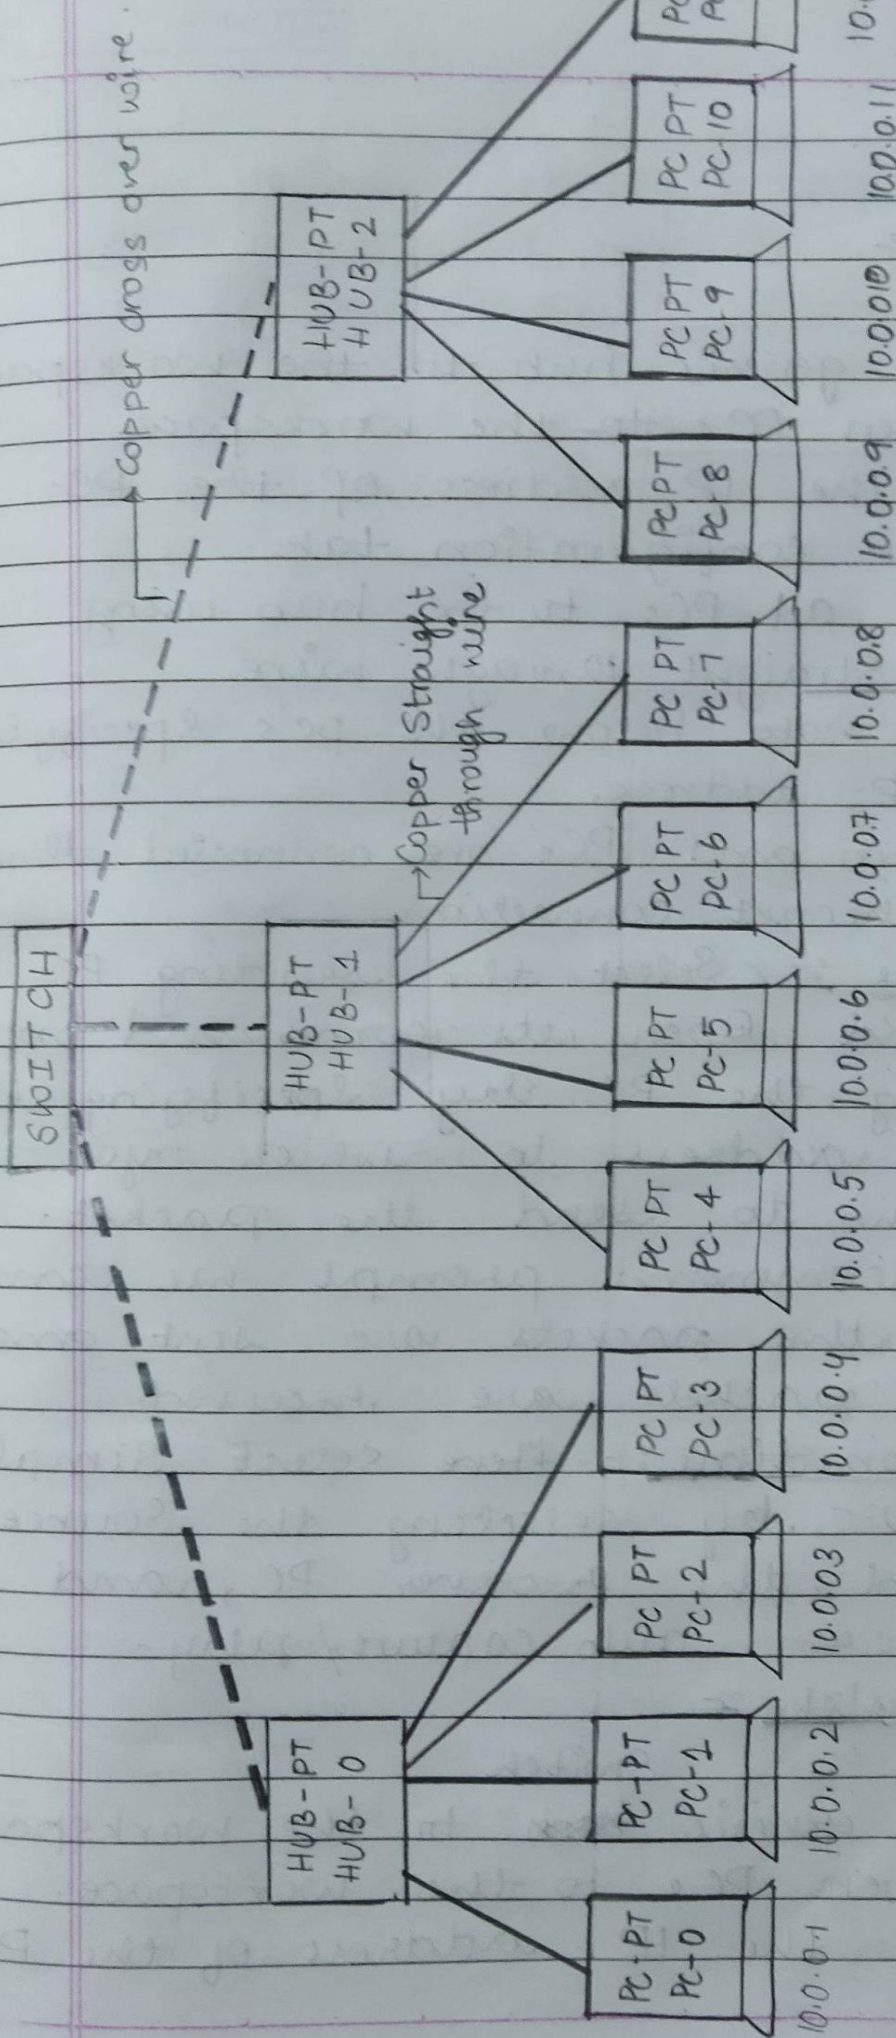 SWITCH
Copper cross over wire.
HUB-PT
HUB-0
HUB-PT
HUB-1
HUB-PT
HUB-2
Copper Straight
through wire
PC-PT
PC-0
PC-PT
PC-1
PC PT
PC-2
PC PT
PC-3
PC PT
PC-4
PC PT
PC-5
PC PT
PC-6
PC PT
PC-7
PC PT
PC-8
PC PT
PC-9
PC PT
PC-10
PC
PC
10.0.0.1
10.0.0.2
10.0.03
10.0.0.4
10.0.0.5
10.0.0.6
10.0.0.7
10.0.0.8
10.0.0.9
10.0.010
10.0.0.11
10.